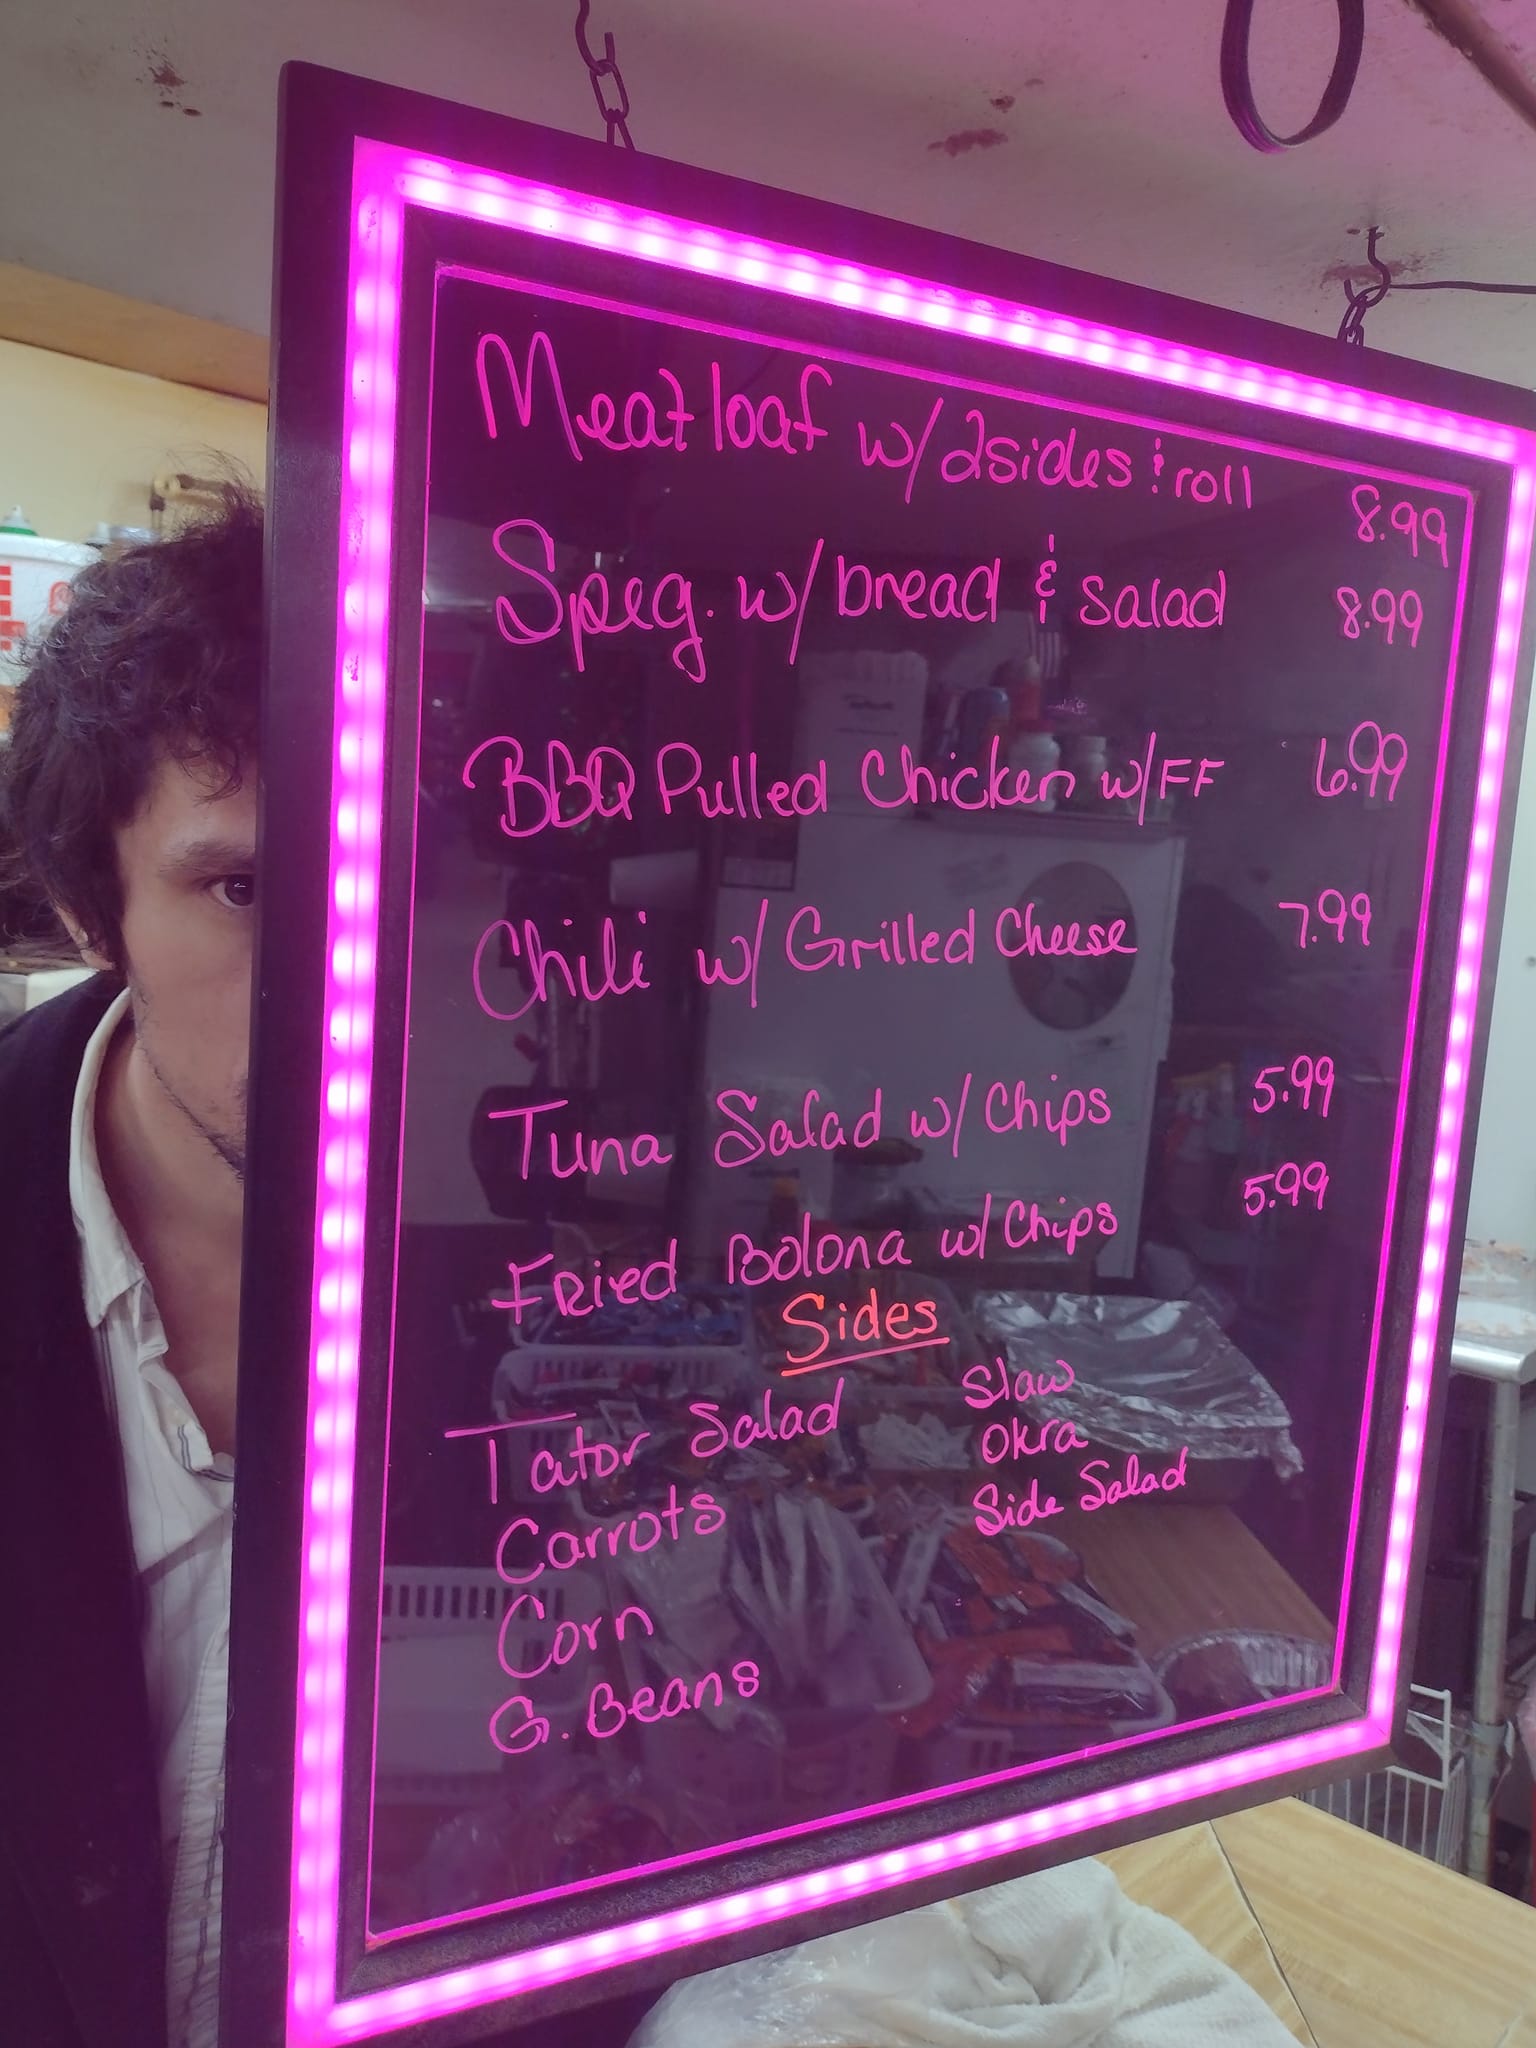 Meatloaf w/2sides & roll 8.99
Speg. w/ bread & salad 8.99
BBQ Pulled Chicken w/FF 6.99
Chili w/ Grilled Cheese 7.99
Tuna Salad w/ Chips 5.99
Fried Bolona w/ Chips 5.99
Sides
Tator Salad
Carrots
Corn
G. Beans
Slaw
Okra
Side Salad